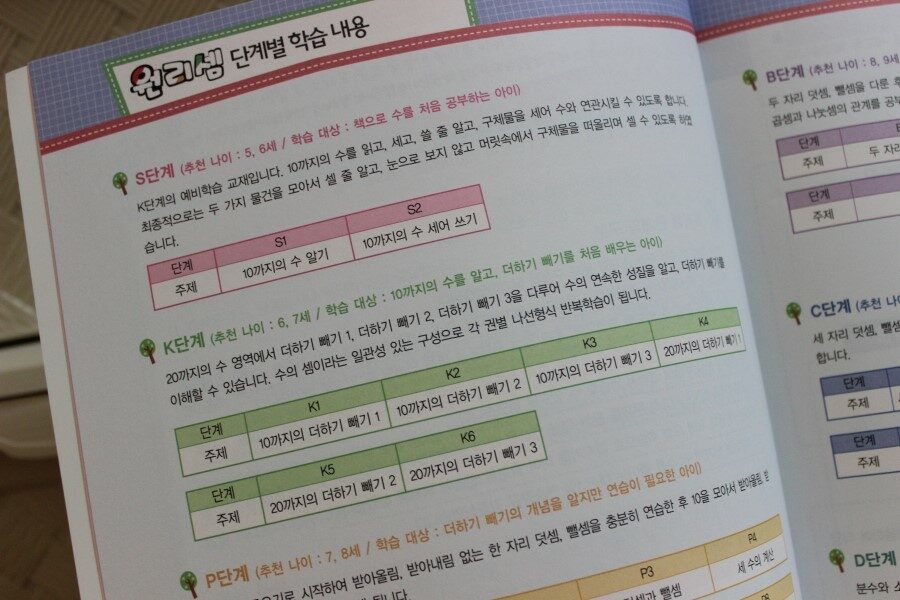 원리셈 단계별 학습 내용
S단계 (추천 나이 : 5, 6세 / 학습 대상 : 책으로 수를 처음 공부하는 아이)
K단계의 예비학습 교재입니다. 10까지의 수를 읽고, 세고, 쓸 줄 알고, 구체물을 세어 수와 연관시킬 수 있도록 합니다.
최종적으로는 두 가지 물건을 모아서 셀 줄 알고, 눈으로 보지 않고 머릿속에서 구체물을 떠올리며 셀 수 있도록 하였
습니다.
단계 S1 S2
주제 10까지의 수 알기 10까지의 수 세어 쓰기
K단계 (추천 나이 : 6, 7세 / 학습 대상 : 10까지의 수를 알고, 더하기 빼기를 처음 배우는 아이)
20까지의 수 영역에서 더하기 빼기 1, 더하기 빼기 2, 더하기 빼기 3을 다루어 수의 연속한 성질을 알고, 더하기 빼기를
이해할 수 있습니다. 수의 셈이라는 일관성 있는 구성으로 각 권별 나선형식 반복학습이 됩니다.
단계 K1 K2 K3 K4
주제 10까지의 더하기 빼기 1 10까지의 더하기 빼기 2 10까지의 더하기 빼기 3 20까지의 더하기 빼기 1
단계 K5 K6
주제 20까지의 더하기 빼기 2 20까지의 더하기 빼기 3
P단계 (추천 나이 : 7, 8세 / 학습 대상 : 더하기 빼기의 개념을 알지만 연습이 필요한 아이)
시작하여 받아올림, 받아내림 없는 한 자리 덧셈, 뺄셈을 충분히 연습한 후 10을 모아서 받아올림, 받
됩니다.
P3 P4
뺄셈 세 수의 계산
B단계 (추천 나이 : 8, 9세
두 자리 덧셈, 뺄셈을 다룬 후
곱셈과 나눗셈의 관계를 공부
단계
주제 두 자리
단계
주제
C단계 (추천 나이
세 자리 덧셈, 뺄셈
합니다.
단계
주제
단계
주제
D단계
분수와 소